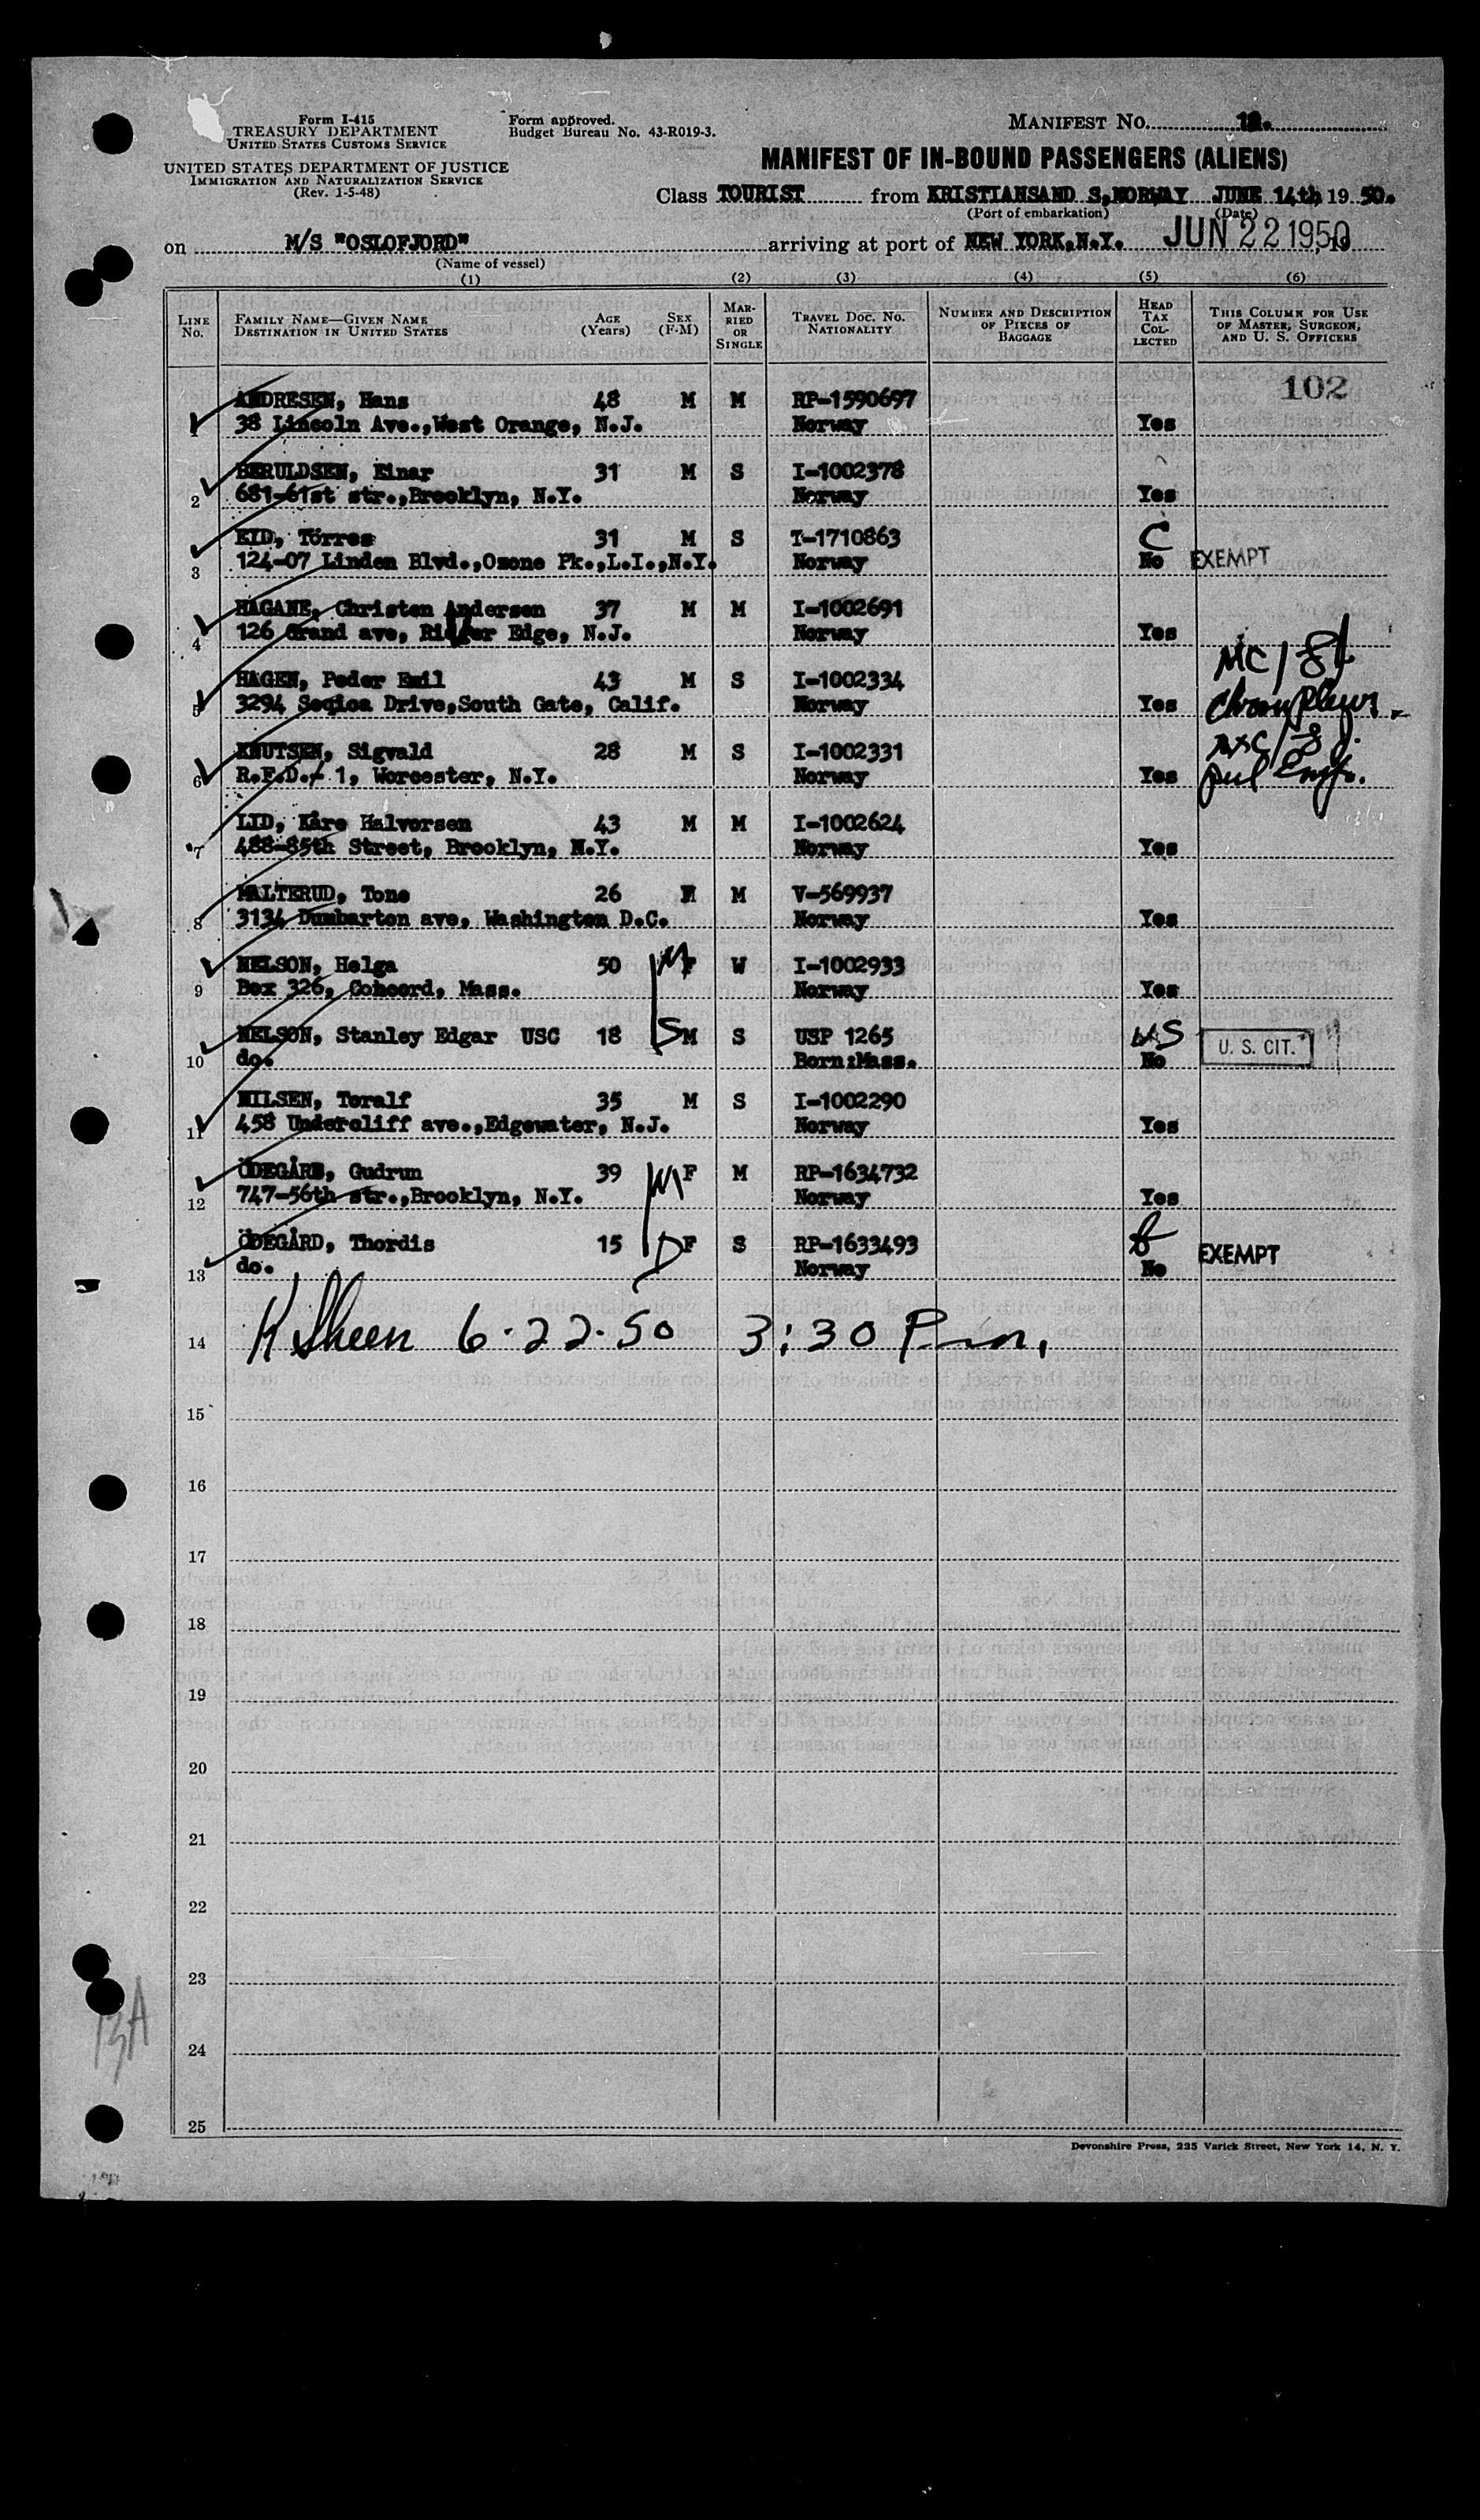 Form I-415
TREASURY DEPARTMENT
UNITED STATES CUSTOMS SERVICE
UNITED STATES DEPARTMENT OF JUSTICE
IMMIGRATION AND NATURALIZATION SERVICE
(Rev. 1-5-48)
Form approved.
Budget Bureau No. 43-R019-3.
MANIFEST No.
MANIFEST OF IN-BOUND PASSENGERS (ALIENS)
Class TOURIST from KRISTIANSAND S, NORWAY JUNE 14th 19 50.
(Port of embarkation) (Date)
on M/S "OSLOFJORD" arriving at port of NEW YORK, N.Y. JUN 22 1950
(Name of vessel)
(1) (2) (3) (4) (5) (6)
LINE No. FAMILY NAME—GIVEN NAME DESTINATION IN UNITED STATES AGE (Years) SEX (F-M) MARRIED OR SINGLE TRAVEL DOC. NO. NATIONALITY NUMBER AND DESCRIPTION OF PIECES OF BAGGAGE HEAD TAX COLLECTED THIS COLUMN FOR USE OF MASTER, SURGEON, AND U. S. OFFICERS
102
ANDRESEN, Hans 48 M M RP-1590697
1 38 Lincoln Ave., West Orange, N.J. Norway Yes
BERULDSEN, Einar 31 M S I-1002378
2 681-61st str., Brooklyn, N.Y. Norway Yes
EID, Torres 31 M S T-1710863 C
3 124-07 Linden Blvd., Ozone Pk., L.I., N.Y. Norway No EXEMPT
HAGANE, Christen Andersen 37 M M I-1002691
4 126 Grand ave, Edge, N.J. Norway Yes
HAGEN, Peder Emil 43 M S I-1002334
5 3294 Seqioa Drive, South Gate, Calif. Norway Yes
KNUTSEN, Sigvald 28 M S I-1002331
6 R.F.D.- 1, Worcester, N.Y. Norway Yes
LID, Kåre Halvorsen 43 M M I-1002624
7 488-85th Street, Brooklyn, N.Y. Norway Yes
MALTERUD, Tone 26 F M V-569937
8 3134 Dumbarton ave, Washington D.C. Norway Yes
NELSON, Helga 50 M F W I-1002933
9 Box 326, Concord, Mass. Norway Yes
NELSON, Stanley Edgar USC 18 S M S USP 1265 US
10 do. Born: Mass. No U. S. CIT.
NILSEN, Toralf 35 M S I-1002290
11 458 Undercliff ave., Edgewater, N.J. Norway Yes
ÖDEGÅRD, Gudrun 39 M F M RP-1634732
12 747-56th str., Brooklyn, N.Y. Norway Yes
ÖDEGÅRD, Thordis 15 D F S RP-1633493
13 do. Norway No EXEMPT
14 K Sheen 6-22-50 3:30 P.m.
15
16
17
18
19
20
21
22
23
24
25
13A
Devonshire Press, 225 Varick Street, New York 14, N. Y.